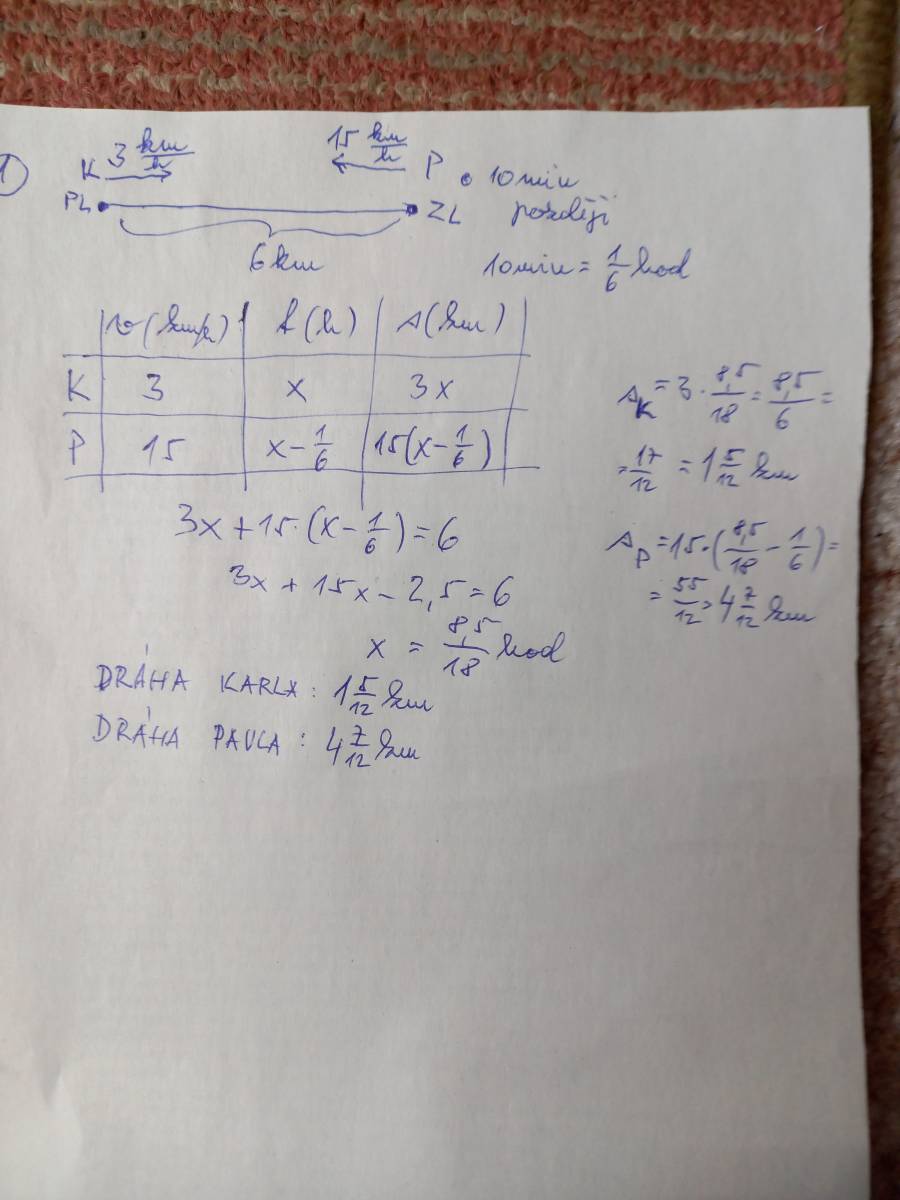 1
K 3 km/h 15 km/h P • 10 min
PL ZL později
6 km 10 min = 1/6 hod
v (km/h) t (h) s (km)
K 3 x 3x
P 15 x - 1/6 15(x - 1/6)
3x + 15·(x - 1/6) = 6
3x + 15x - 2,5 = 6
x = 8,5/18 hod
DRÁHA KARLA: 1 5/12 km
DRÁHA PAVLA: 4 7/12 km
s_K = 3 · 8,5/18 = 8,5/6 =
= 17/12 = 1 5/12 km
s_P = 15·(8,5/18 - 1/6) =
= 55/12 = 4 7/12 km